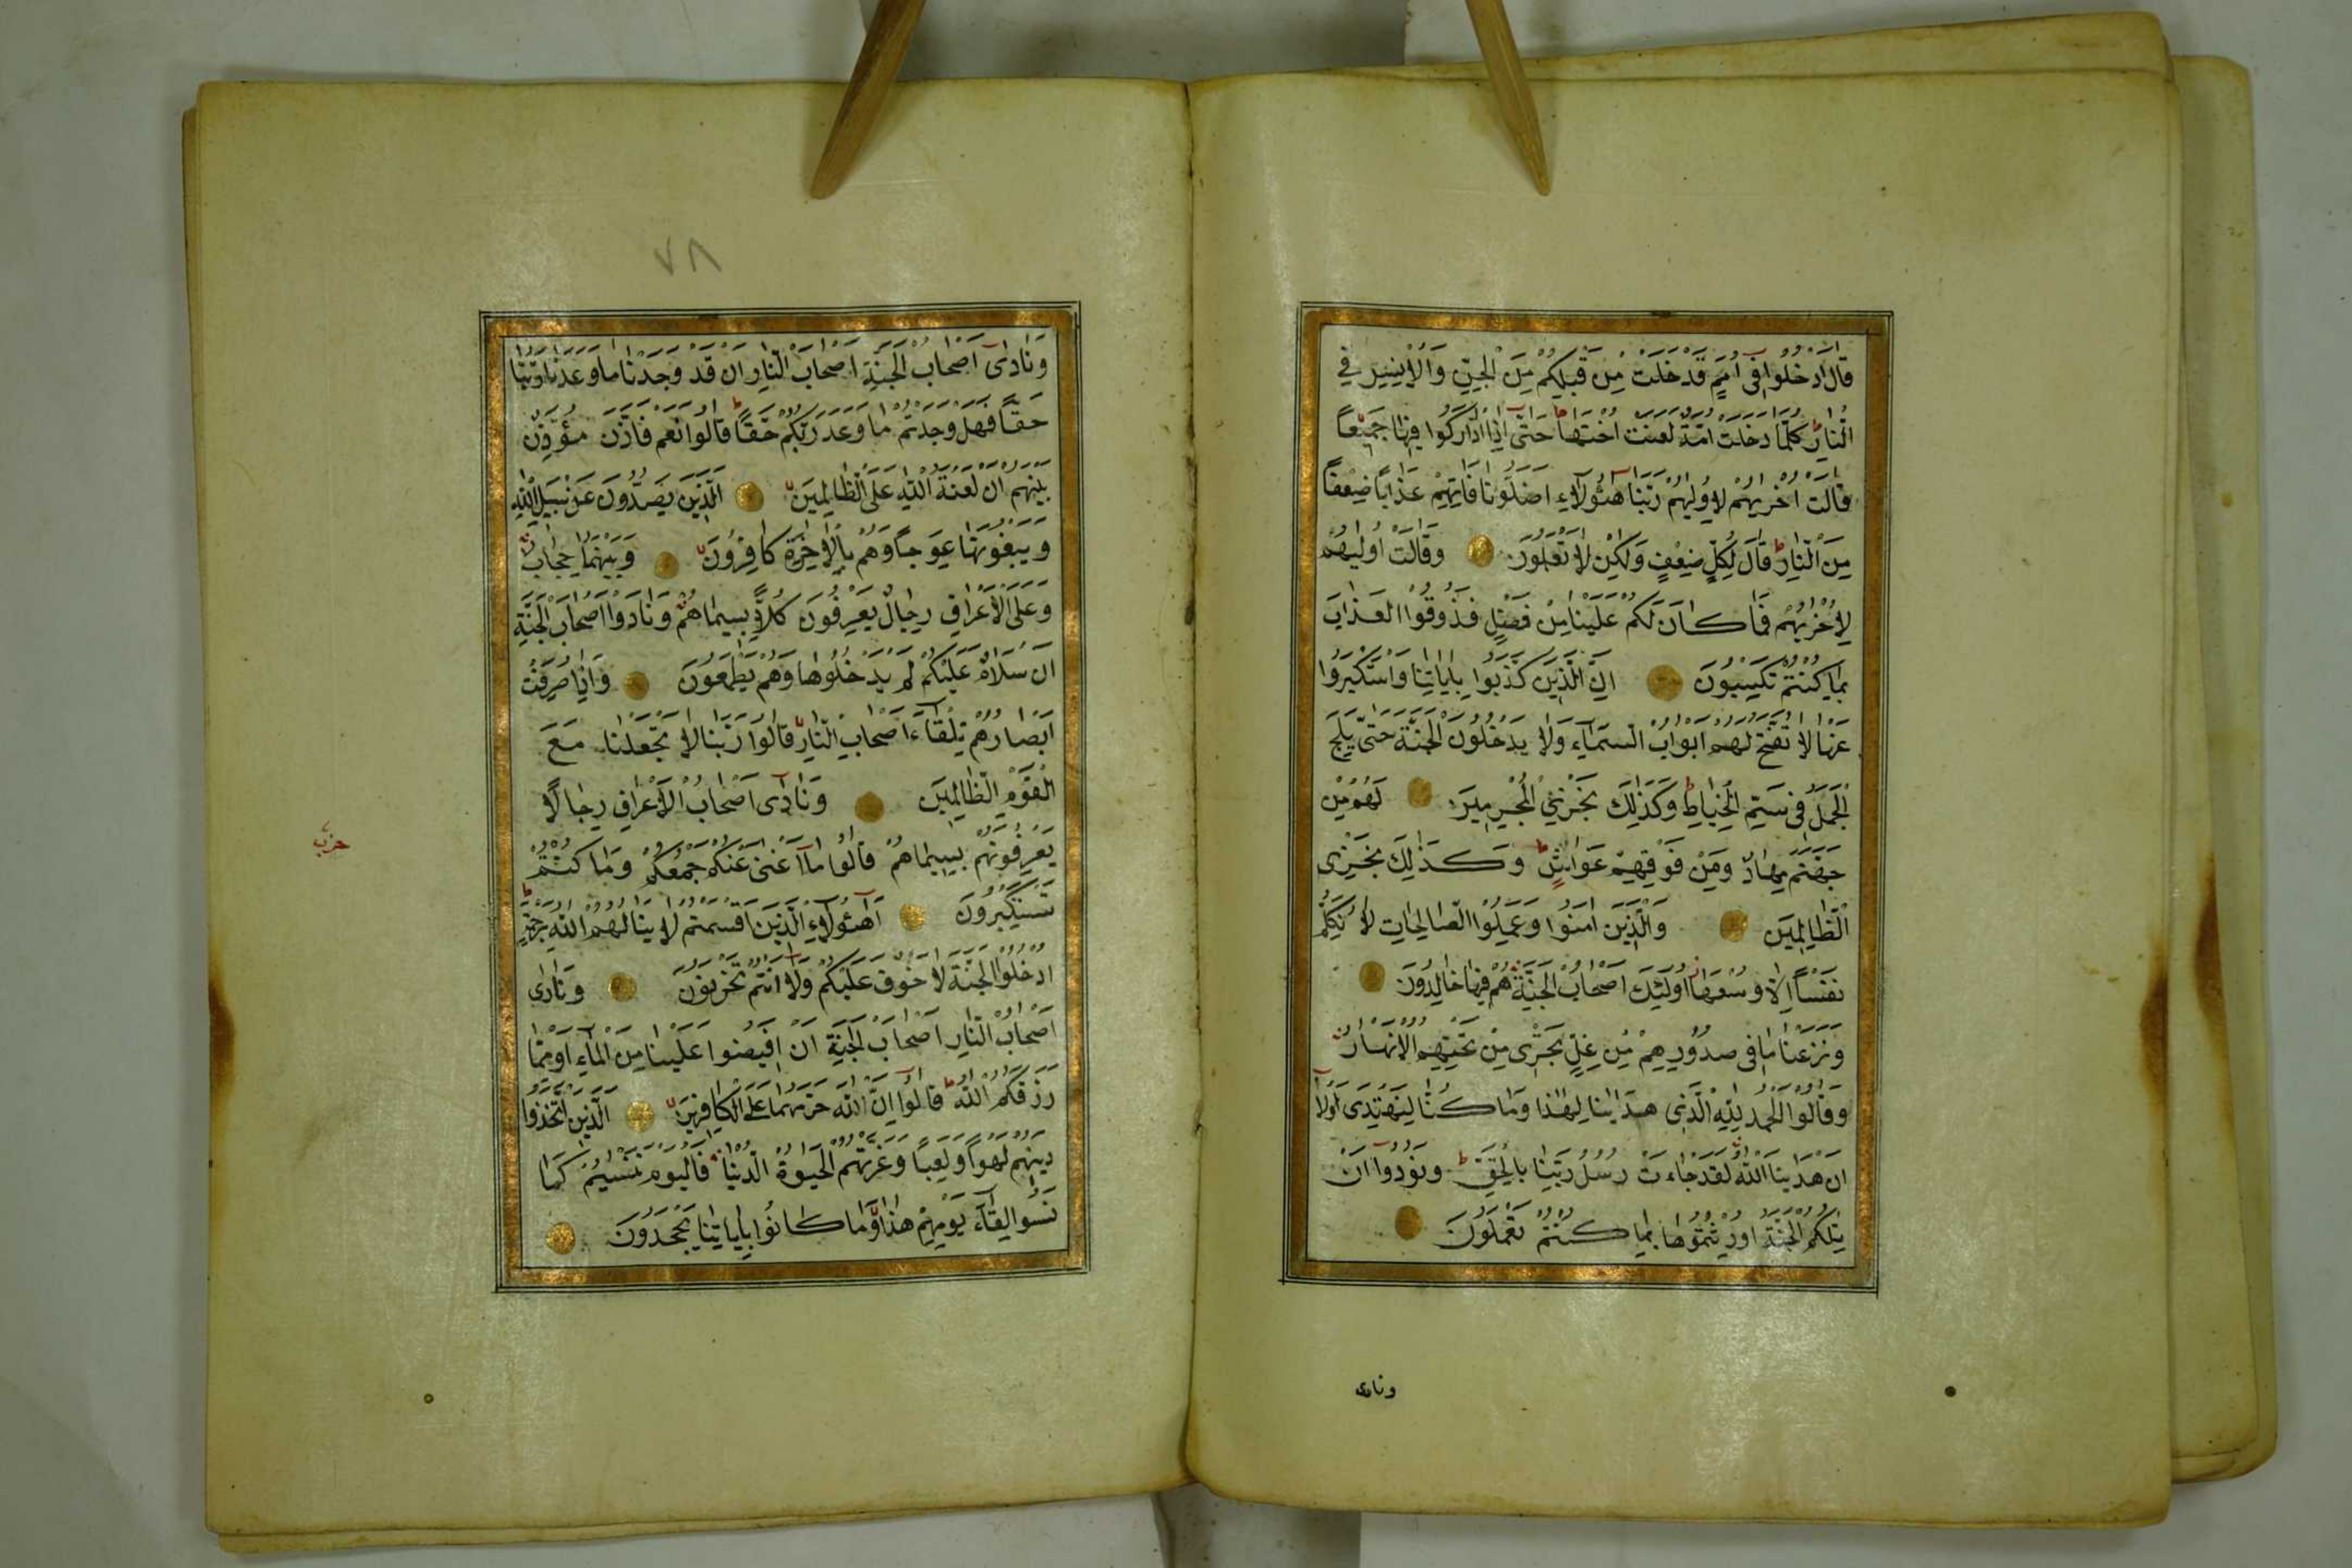 قَالَ ادْخُلُوا فِى اُمَمٍ قَدْ خَلَتْ مِنْ قَبْلِكُمْ مِنَ الْجِنِّ وَالْاِنْسِ فِى
النَّارِ ط كُلَّمَا دَخَلَتْ اُمَّةٌ لَعَنَتْ اُخْتَهَا ط حَتّٰى اِذَا ادَّارَكُوا فِيهَا جَمِيعًا
قَالَتْ اُخْرٰيهُمْ لِاُولٰيهُمْ رَبَّنَا هٰٓؤُلَاءِ اَضَلُّونَا فَاٰتِهِمْ عَذَابًا ضِعْفًا
مِنَ النَّارِ ط قَالَ لِكُلٍّ ضِعْفٌ وَلٰكِنْ لَا تَعْلَمُونَ وَقَالَتْ اُولٰيهُمْ
لِاُخْرٰيهُمْ فَمَا كَانَ لَكُمْ عَلَيْنَا مِنْ فَضْلٍ فَذُوقُوا الْعَذَابَ
بِمَا كُنْتُمْ تَكْسِبُونَ اِنَّ الَّذِينَ كَذَّبُوا بِاٰيَاتِنَا وَاسْتَكْبَرُوا
عَنْهَا لَا تُفَتَّحُ لَهُمْ اَبْوَابُ السَّمَآءِ وَلَا يَدْخُلُونَ الْجَنَّةَ حَتّٰى يَلِجَ
الْجَمَلُ فِى سَمِّ الْخِيَاطِ ط وَكَذٰلِكَ نَجْزِى الْمُجْرِمِينَ لَهُمْ مِنْ
جَهَنَّمَ مِهَادٌ وَمِنْ فَوْقِهِمْ غَوَاشٍ ط وَكَذٰلِكَ نَجْزِى
الظَّالِمِينَ وَالَّذِينَ اٰمَنُوا وَعَمِلُوا الصَّالِحَاتِ لَا نُكَلِّفُ
نَفْسًا اِلَّا وُسْعَهَا اُولٰٓئِكَ اَصْحَابُ الْجَنَّةِ هُمْ فِيهَا خَالِدُونَ
وَنَزَعْنَا مَا فِى صُدُورِهِمْ مِنْ غِلٍّ تَجْرِى مِنْ تَحْتِهِمُ الْاَنْهَارُ
وَقَالُوا الْحَمْدُ لِلّٰهِ الَّذِى هَدٰينَا لِهٰذَا وَمَا كُنَّا لِنَهْتَدِىَ لَوْلَآ
اَنْ هَدٰينَا اللّٰهُ لَقَدْ جَاءَتْ رُسُلُ رَبِّنَا بِالْحَقِّ ط وَنُودُوا اَنْ
تِلْكُمُ الْجَنَّةُ اُورِثْتُمُوهَا بِمَا كُنْتُمْ تَعْمَلُونَ
ونادى
٧٨
وَنَادٰىٓ اَصْحَابُ الْجَنَّةِ اَصْحَابَ النَّارِ اَنْ قَدْ وَجَدْنَا مَا وَعَدَنَا رَبُّنَا
حَقًّا فَهَلْ وَجَدْتُمْ مَا وَعَدَ رَبُّكُمْ حَقًّا ط قَالُوا نَعَمْ فَاَذَّنَ مُؤَذِّنٌ
بَيْنَهُمْ اَنْ لَعْنَةُ اللّٰهِ عَلَى الظَّالِمِينَ اَلَّذِينَ يَصُدُّونَ عَنْ سَبِيلِ اللّٰهِ
وَيَبْغُونَهَا عِوَجًا وَهُمْ بِالْاٰخِرَةِ كَافِرُونَ وَبَيْنَهُمَا حِجَابٌ
وَعَلَى الْاَعْرَافِ رِجَالٌ يَعْرِفُونَ كُلًّا بِسِيمَاهُمْ وَنَادَوْا اَصْحَابَ الْجَنَّةِ
اَنْ سَلَامٌ عَلَيْكُمْ لَمْ يَدْخُلُوهَا وَهُمْ يَطْمَعُونَ وَاِذَا صُرِفَتْ
اَبْصَارُهُمْ تِلْقَآءَ اَصْحَابِ النَّارِ قَالُوا رَبَّنَا لَا تَجْعَلْنَا مَعَ
الْقَوْمِ الظَّالِمِينَ وَنَادٰىٓ اَصْحَابُ الْاَعْرَافِ رِجَالًا
يَعْرِفُونَهُمْ بِسِيمَاهُمْ قَالُوا مَآ اَغْنٰى عَنْكُمْ جَمْعُكُمْ وَمَا كُنْتُمْ
تَسْتَكْبِرُونَ اَهٰٓؤُلَآءِ الَّذِينَ اَقْسَمْتُمْ لَا يَنَالُهُمُ اللّٰهُ بِرَحْمَةٍ ط
اُدْخُلُوا الْجَنَّةَ لَا خَوْفٌ عَلَيْكُمْ وَلَآ اَنْتُمْ تَحْزَنُونَ وَنَادٰى
اَصْحَابُ النَّارِ اَصْحَابَ الْجَنَّةِ اَنْ اَفِيضُوا عَلَيْنَا مِنَ الْمَآءِ اَوْ مِمَّا
رَزَقَكُمُ اللّٰهُ ط قَالُوٓا اِنَّ اللّٰهَ حَرَّمَهُمَا عَلَى الْكَافِرِينَ اَلَّذِينَ اتَّخَذُوا
دِينَهُمْ لَهْوًا وَلَعِبًا وَغَرَّتْهُمُ الْحَيٰوةُ الدُّنْيَا فَالْيَوْمَ نَنْسٰيهُمْ كَمَا
نَسُوا لِقَآءَ يَوْمِهِمْ هٰذَا وَمَا كَانُوا بِاٰيَاتِنَا يَجْحَدُونَ
حزب